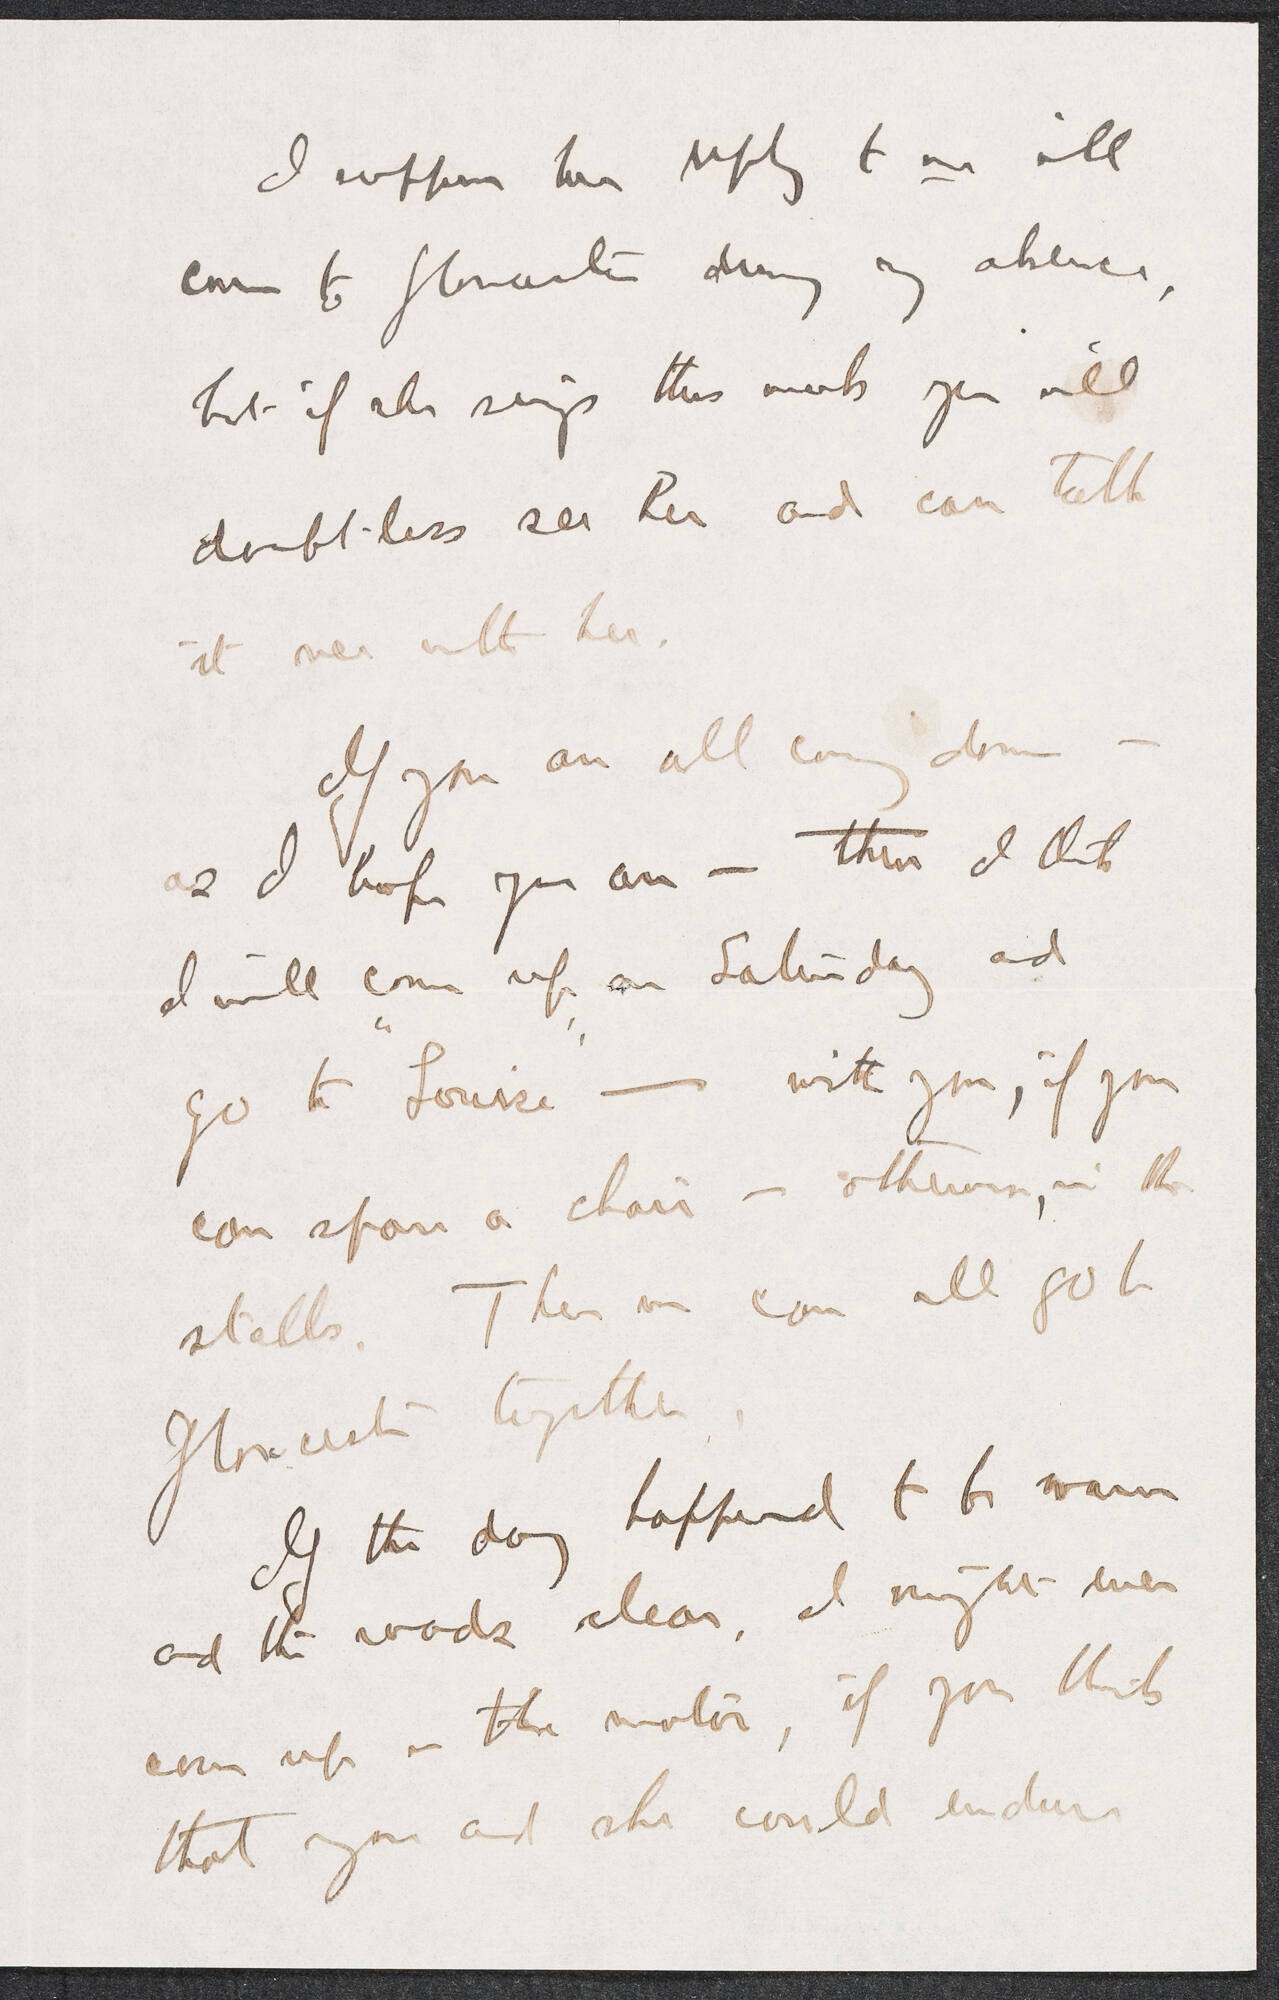 I suppose her reply to me will
come to Gloucester during my absence,
but if she sings this week you will
doubtless see her and can talk
it over with her.
If you are all coming down —
as I hope you are — then I think
I will come up on Saturday and
go to "Louise" — with you, if you
can spare a chair — otherwise, in the
stalls. Then we can all go to
Gloucester together.
If the day happened to be warm
and the roads clear, I might even
come up in the motor, if you think
that you and she could endure